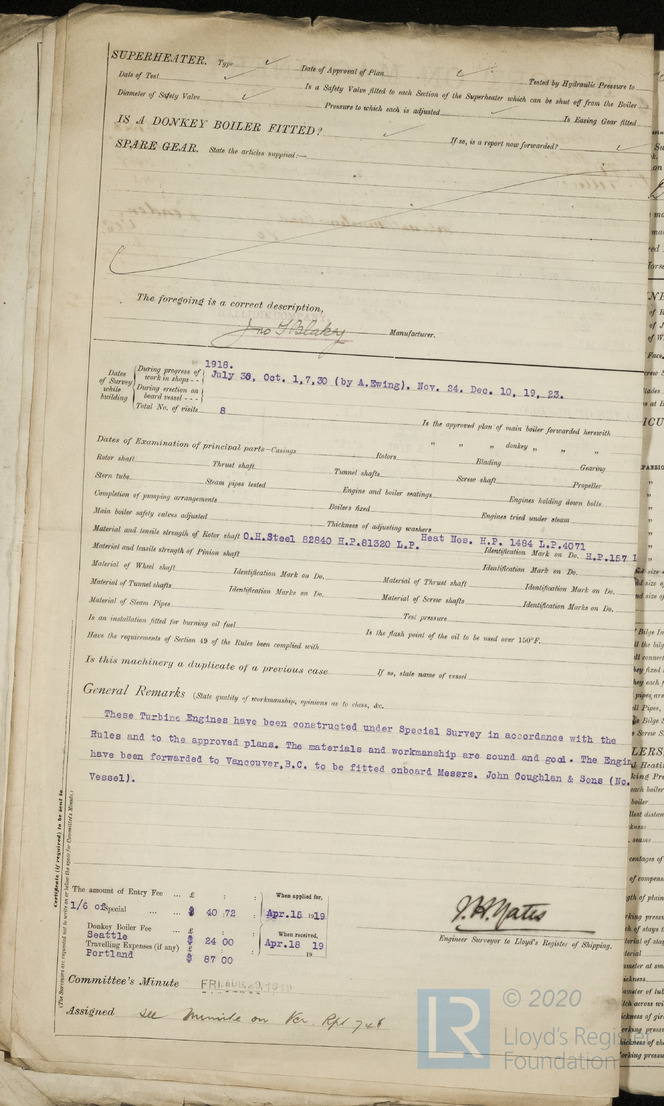 SUPERHEATER. Type Date of Approval of Plan Tested by Hydraulic Pressure to
Date of Test Is a Safety Valve fitted to each Section of the Superheater which can be shut off from the Boiler
Diameter of Safety Valve Pressure to which each is adjusted Is Easing Gear fitted
IS A DONKEY BOILER FITTED? If so, is a report now forwarded?
SPARE GEAR. State the articles supplied:—
The foregoing is a correct description,
Jno G Blakey Manufacturer.
1918.
Dates of Survey while building
During progress of work in shops - - July 30, Oct. 1,7,30 (by A.Ewing). Nov. 24. Dec. 10, 19, 23.
During erection on board vessel - - -
Total No. of visits 8
Is the approved plan of main boiler forwarded herewith
" " " donkey " " "
Dates of Examination of principal parts—Casings Rotors Blading Gearing
Rotor shaft Thrust shaft Tunnel shafts Screw shaft Propeller
Stern tube Steam pipes tested Engine and boiler seatings Engines holding down bolts
Completion of pumping arrangements Boilers fixed Engines tried under steam
Main boiler safety valves adjusted Thickness of adjusting washers
Material and tensile strength of Rotor shaft O.H.Steel 82840 H.P.81320 L.P. Heat Nos. H.P. 1484 L.P.4071 Identification Mark on Do. H.P.157
Material and tensile strength of Pinion shaft Identification Mark on Do.
Material of Wheel shaft Identification Mark on Do. Material of Thrust shaft Identification Mark on Do.
Material of Tunnel shafts Identification Marks on Do. Material of Screw shafts Identification Marks on Do.
Material of Steam Pipes Test pressure
Is an installation fitted for burning oil fuel Is the flash point of the oil to be used over 150°F.
Have the requirements of Section 49 of the Rules been complied with
Is this machinery a duplicate of a previous case If so, state name of vessel
General Remarks (State quality of workmanship, opinions as to class, &c.
These Turbine Engines have been constructed under Special Survey in accordance with the
Rules and to the approved plans. The materials and workmanship are sound and good. The Engin
have been forwarded to Vancouver,B.C. to be fitted onboard Messrs. John Coughlan & Sons (No.
Vessel).
Certificate (if required) to be sent to
(The Surveyors are requested not to write on or below the space for Committee's Minute.)
The amount of Entry Fee ... £ : : When applied for,
1/6 of Special ... ... $ 40.72 Apr.15 1919
Donkey Boiler Fee ... £ : : When received,
Seattle $ 24 00
Travelling Expenses (if any) £ Apr.18 19
Portland $ 87 00 19
J.H. Yates
Engineer Surveyor to Lloyd's Register of Shipping.
Committee's Minute FRI. AUG. 29. 1919
Assigned see minute on Vcr. Rpt 746
LR © 2020
Lloyd's Register
Foundation